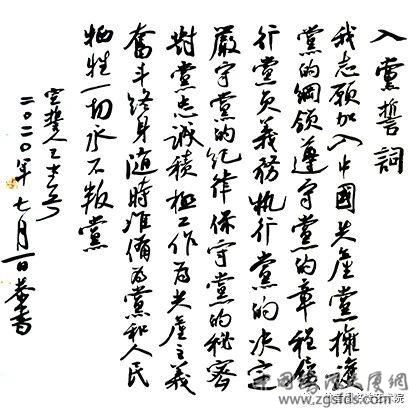 入黨誓詞
我志願加入中國共產黨擁護
黨的綱領遵守黨的章程履
行黨员義務執行黨的决定
嚴守黨的紀律保守黨的秘密
對黨忠誠積極工作為共產主義
奮斗終身隨時准備為黨和人民
牺牲一切永不叛黨
宣誓人
二〇二〇年七月一日恭書